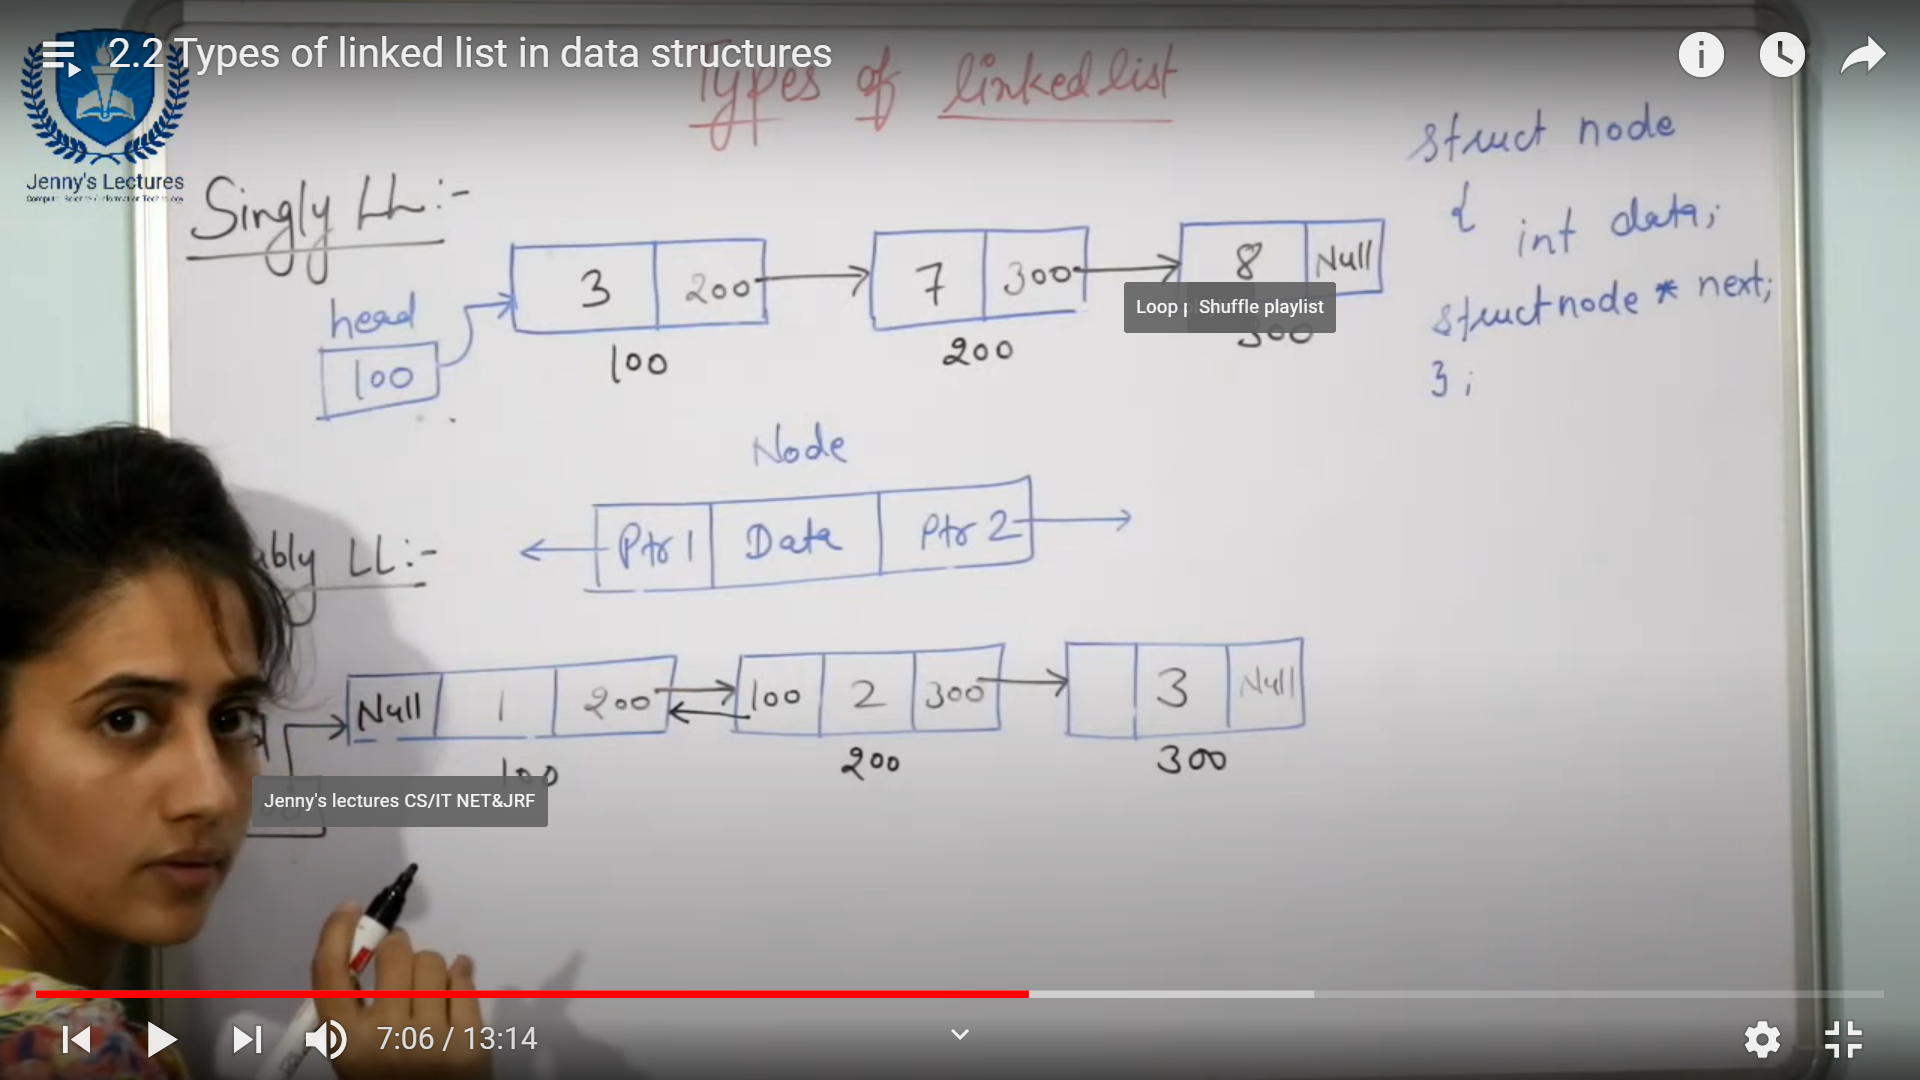 2.2 Types of linked list in data structures
Types of linked list
Jenny's Lectures
Computer Science / Information Technology
Singly LL:-
head
100
3 200
100
7 300
200
8 Null
300
Loop
Shuffle playlist
struct node
{
int data;
struct node * next;
};
Node
LL:-
Ptr1 Data Ptr 2
Null 1 200
100
100 2 300
200
3 Null
300
Jenny's lectures CS/IT NET&JRF
7:06 / 13:14